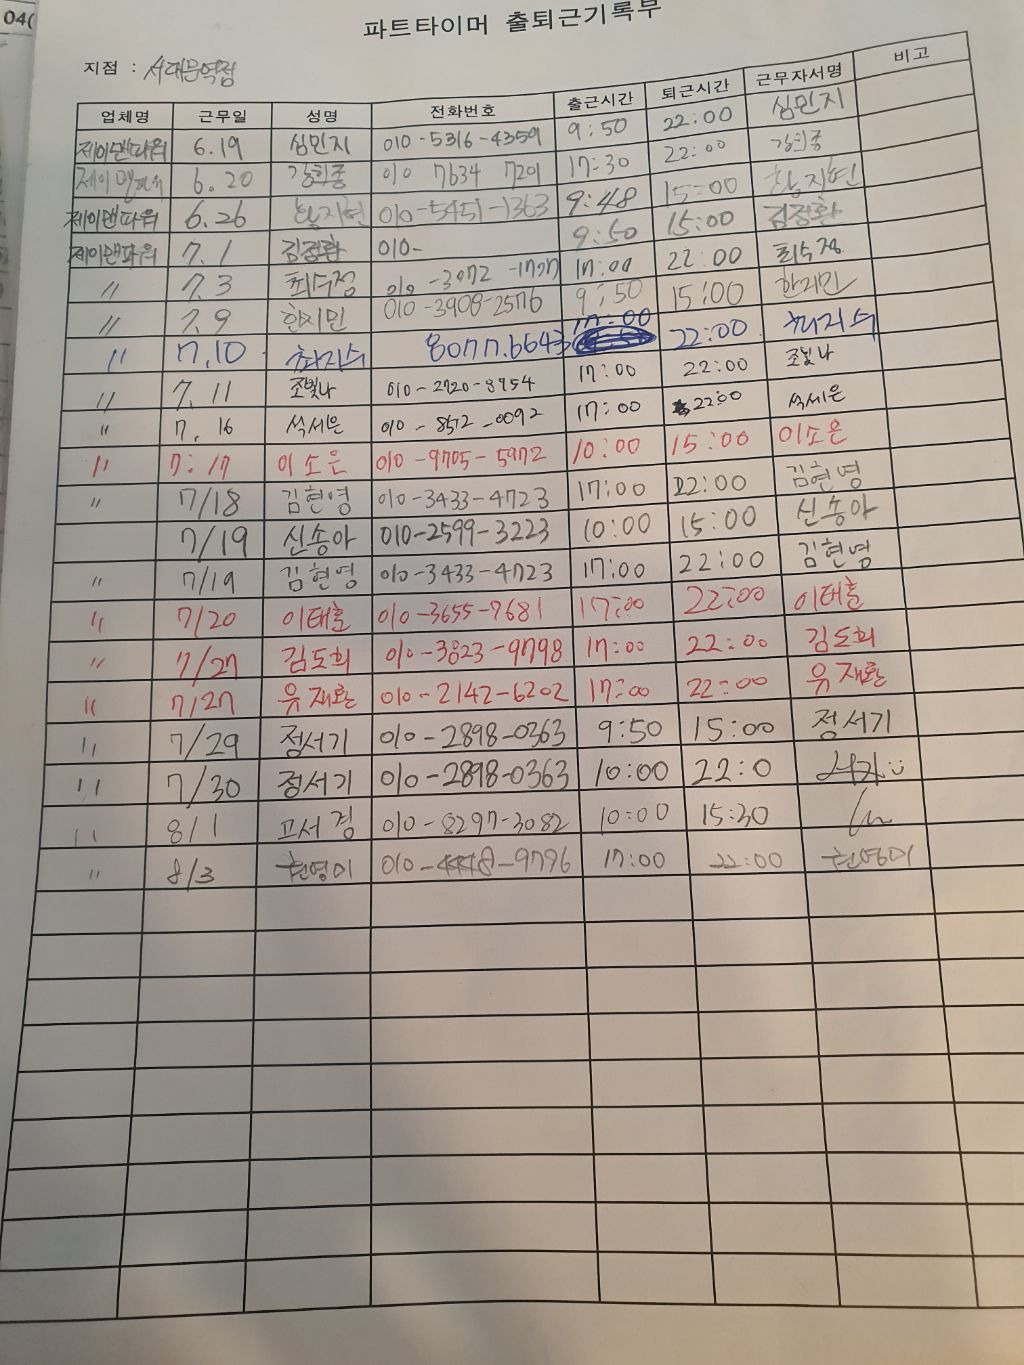 04(
파트타이머 출퇴근기록부
지점 : 서대문역점
업체명 근무일 성명 전화번호 출근시간 퇴근시간 근무자서명 비고
제이앤파워 6.19 심민지 010-5316-4359 9:50 22:00 심민지
제이앤파워 6.20 강희종 010 7634 7201 17:30 22:00 강희종
제이앤파워 6.26 황지현 010-5451-1363 9:48 15:00 황지현
제이앤파워 7.1 김정환 010- 9:50 15:00 김정환
〃 7.3 최수정 010-3072-1777 17:00 22:00 최수정
〃 7.9 한지민 010-3908-2576 9:50 15:00 한지민
〃 7.10 8077.6643 17:00 22:00
〃 7.11 조빛나 010-2720-8954 17:00 22:00 조빛나
〃 7.16 석세은 010-8512-0092 17:00 22:00 석세은
〃 7:17 이소은 010-9705-5972 10:00 15:00 이소은
〃 7/18 김현영 010-3433-4723 17:00 22:00 김현영
7/19 신송아 010-2599-3223 10:00 15:00 신송아
〃 7/19 김현영 010-3433-4723 17:00 22:00 김현영
〃 7/20 이태훈 010-3655-7681 17:00 22:00 이태훈
〃 7/27 김도희 010-3823-9798 17:00 22:00 김도희
〃 7/27 유재환 010-2142-6202 17:00 22:00 유재환
〃 7/29 정서기 010-2898-0363 9:50 15:00 정서기
〃 7/30 정서기 010-2898-0363 10:00 22:0
〃 8/1 고서경 010-8297-3082 10:00 15:30
〃 8/3 현영미 17:00 22:00 현영미